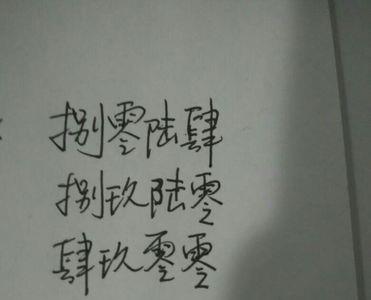 捌零陆肆
捌玖陆零
肆玖零零